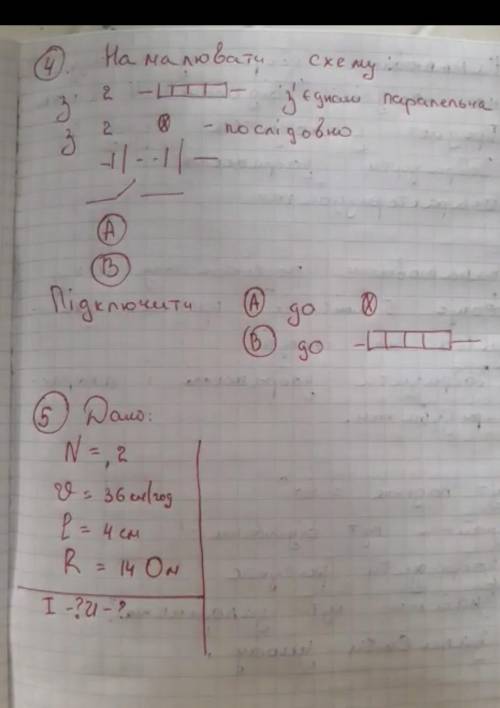 4. Намалювати схему:
з 2 з'єднані паралельно
з 2 - послідовно
A
B
Підключити A до
B до
5 Дано:
N = 2
v = 36 см/год
l = 4 см
R = 14 Ом
I - ? U - ?